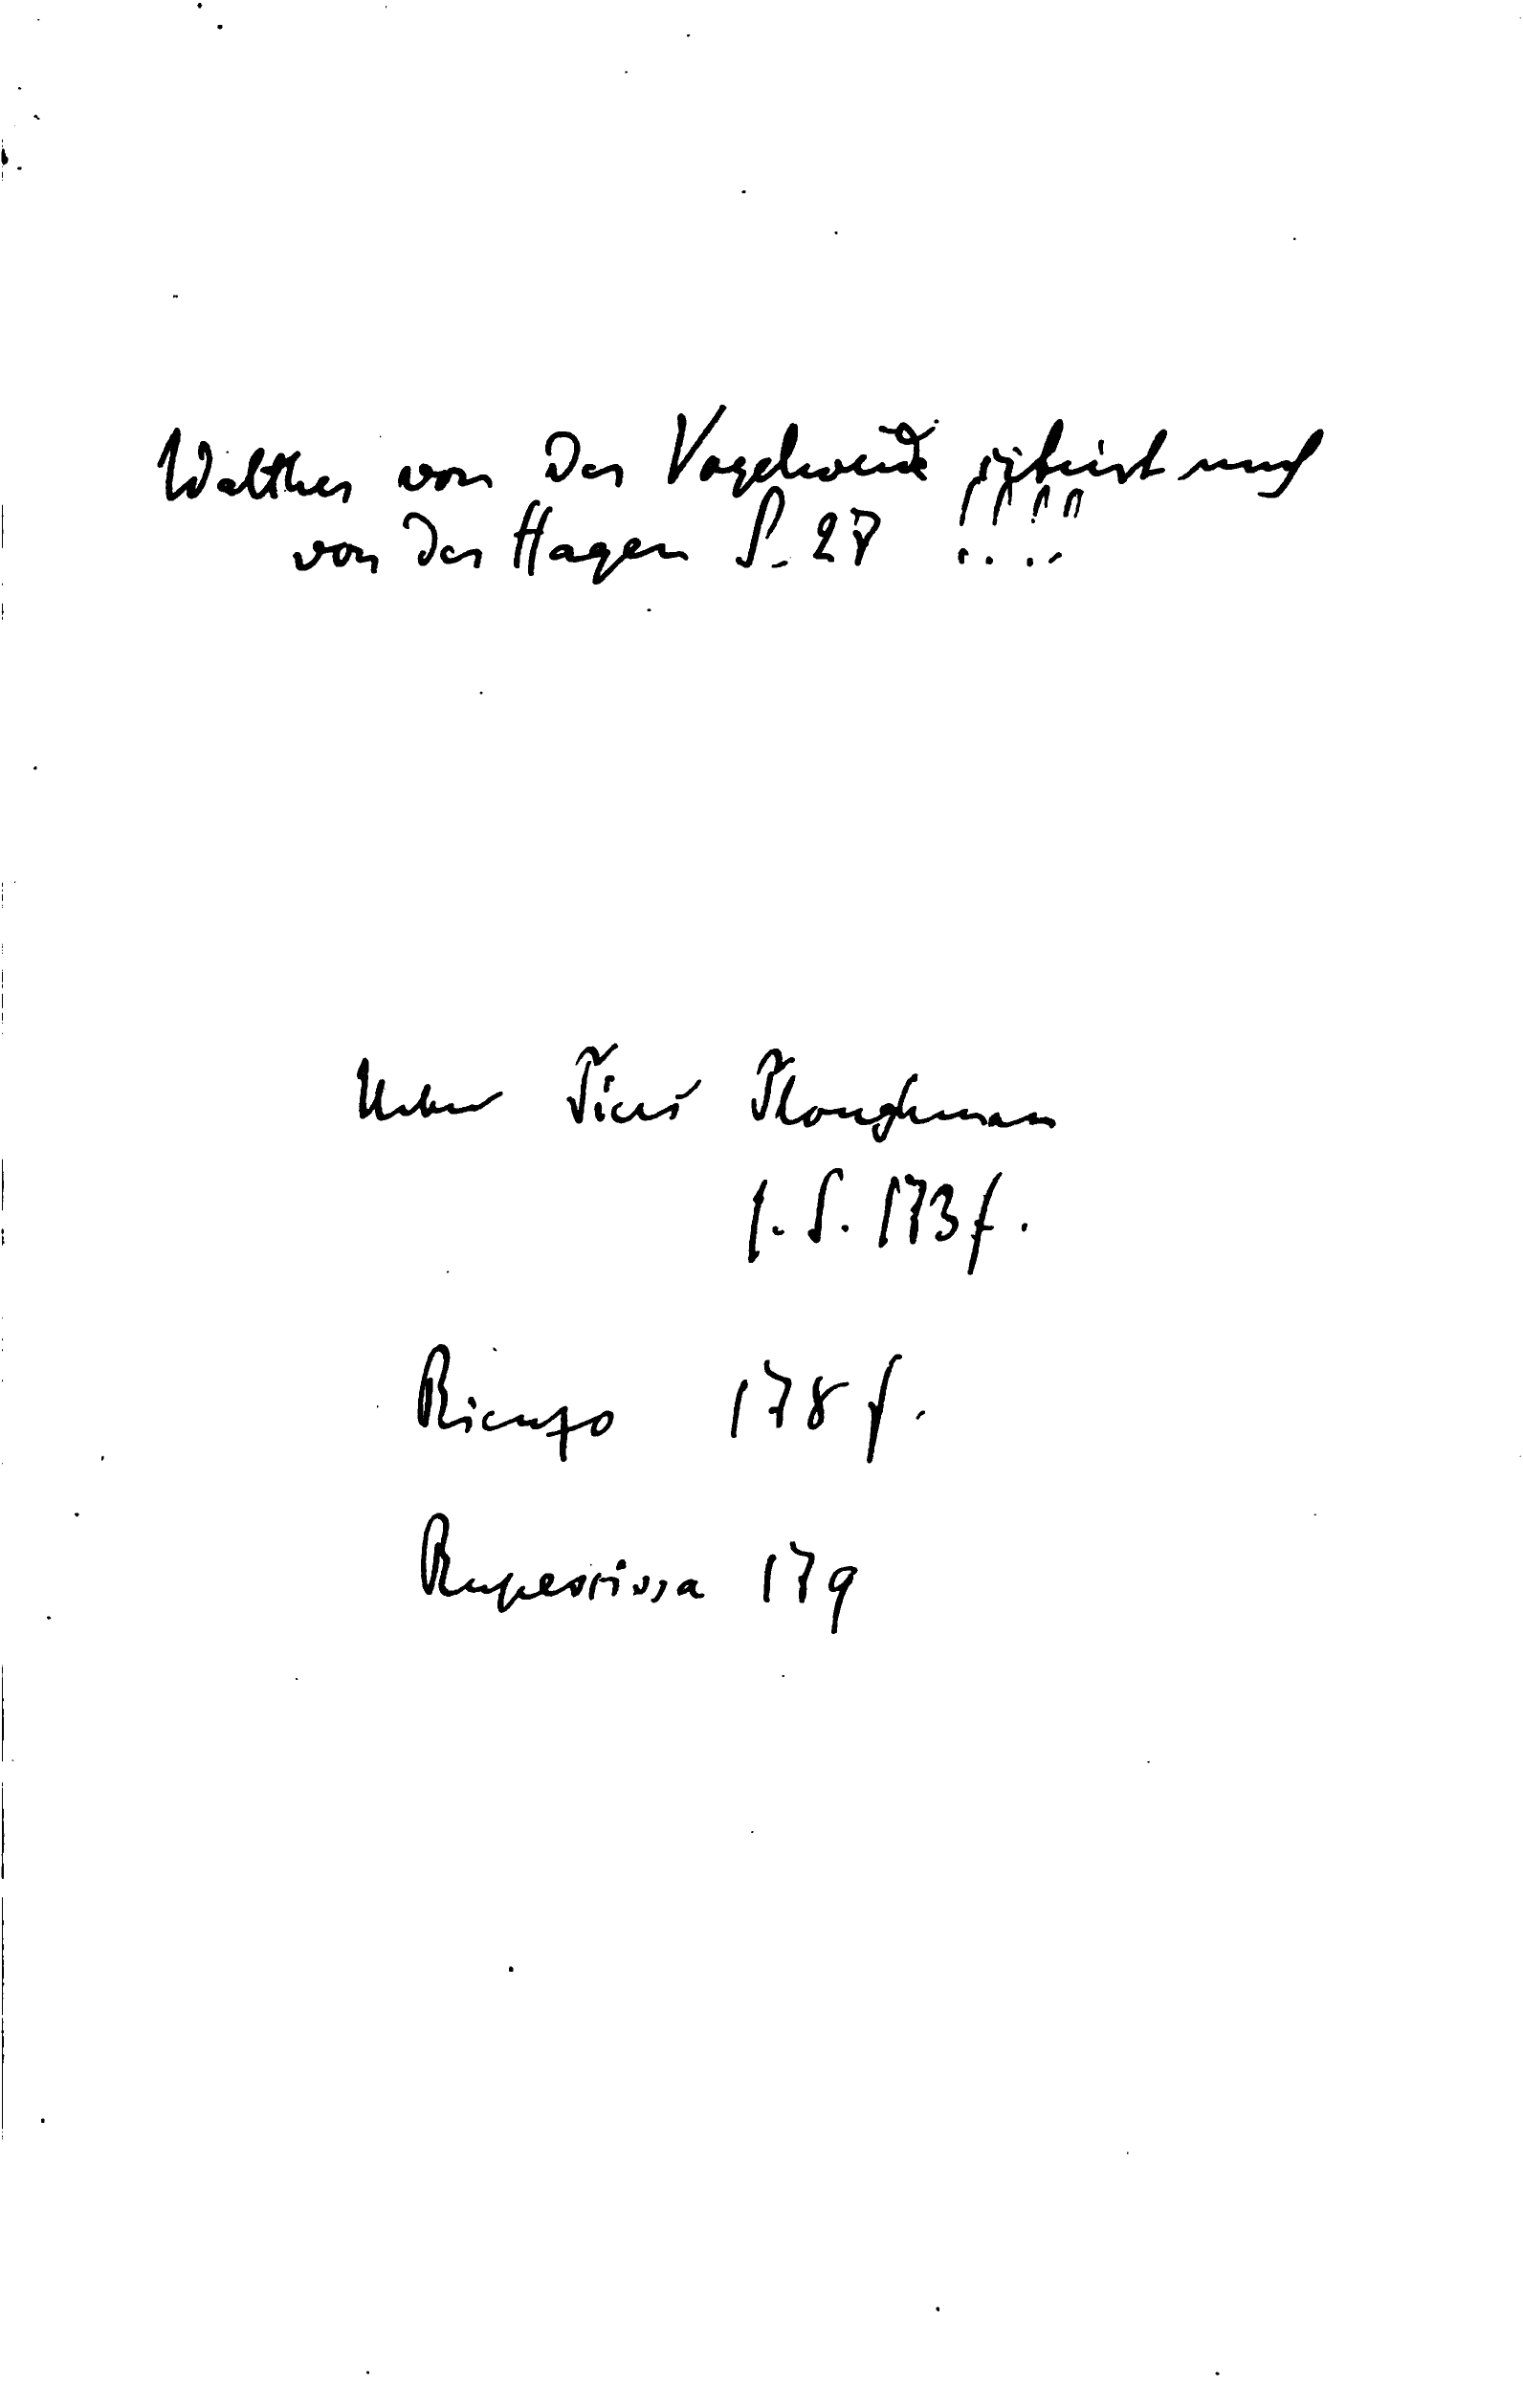 Walther von der Vogelweide zitiert nach
von der Hagen S. 28 !!!!
Ueber Piers Ploughman
s. S. 173 f.
Rienzo 178 f.
Rupescissa 179